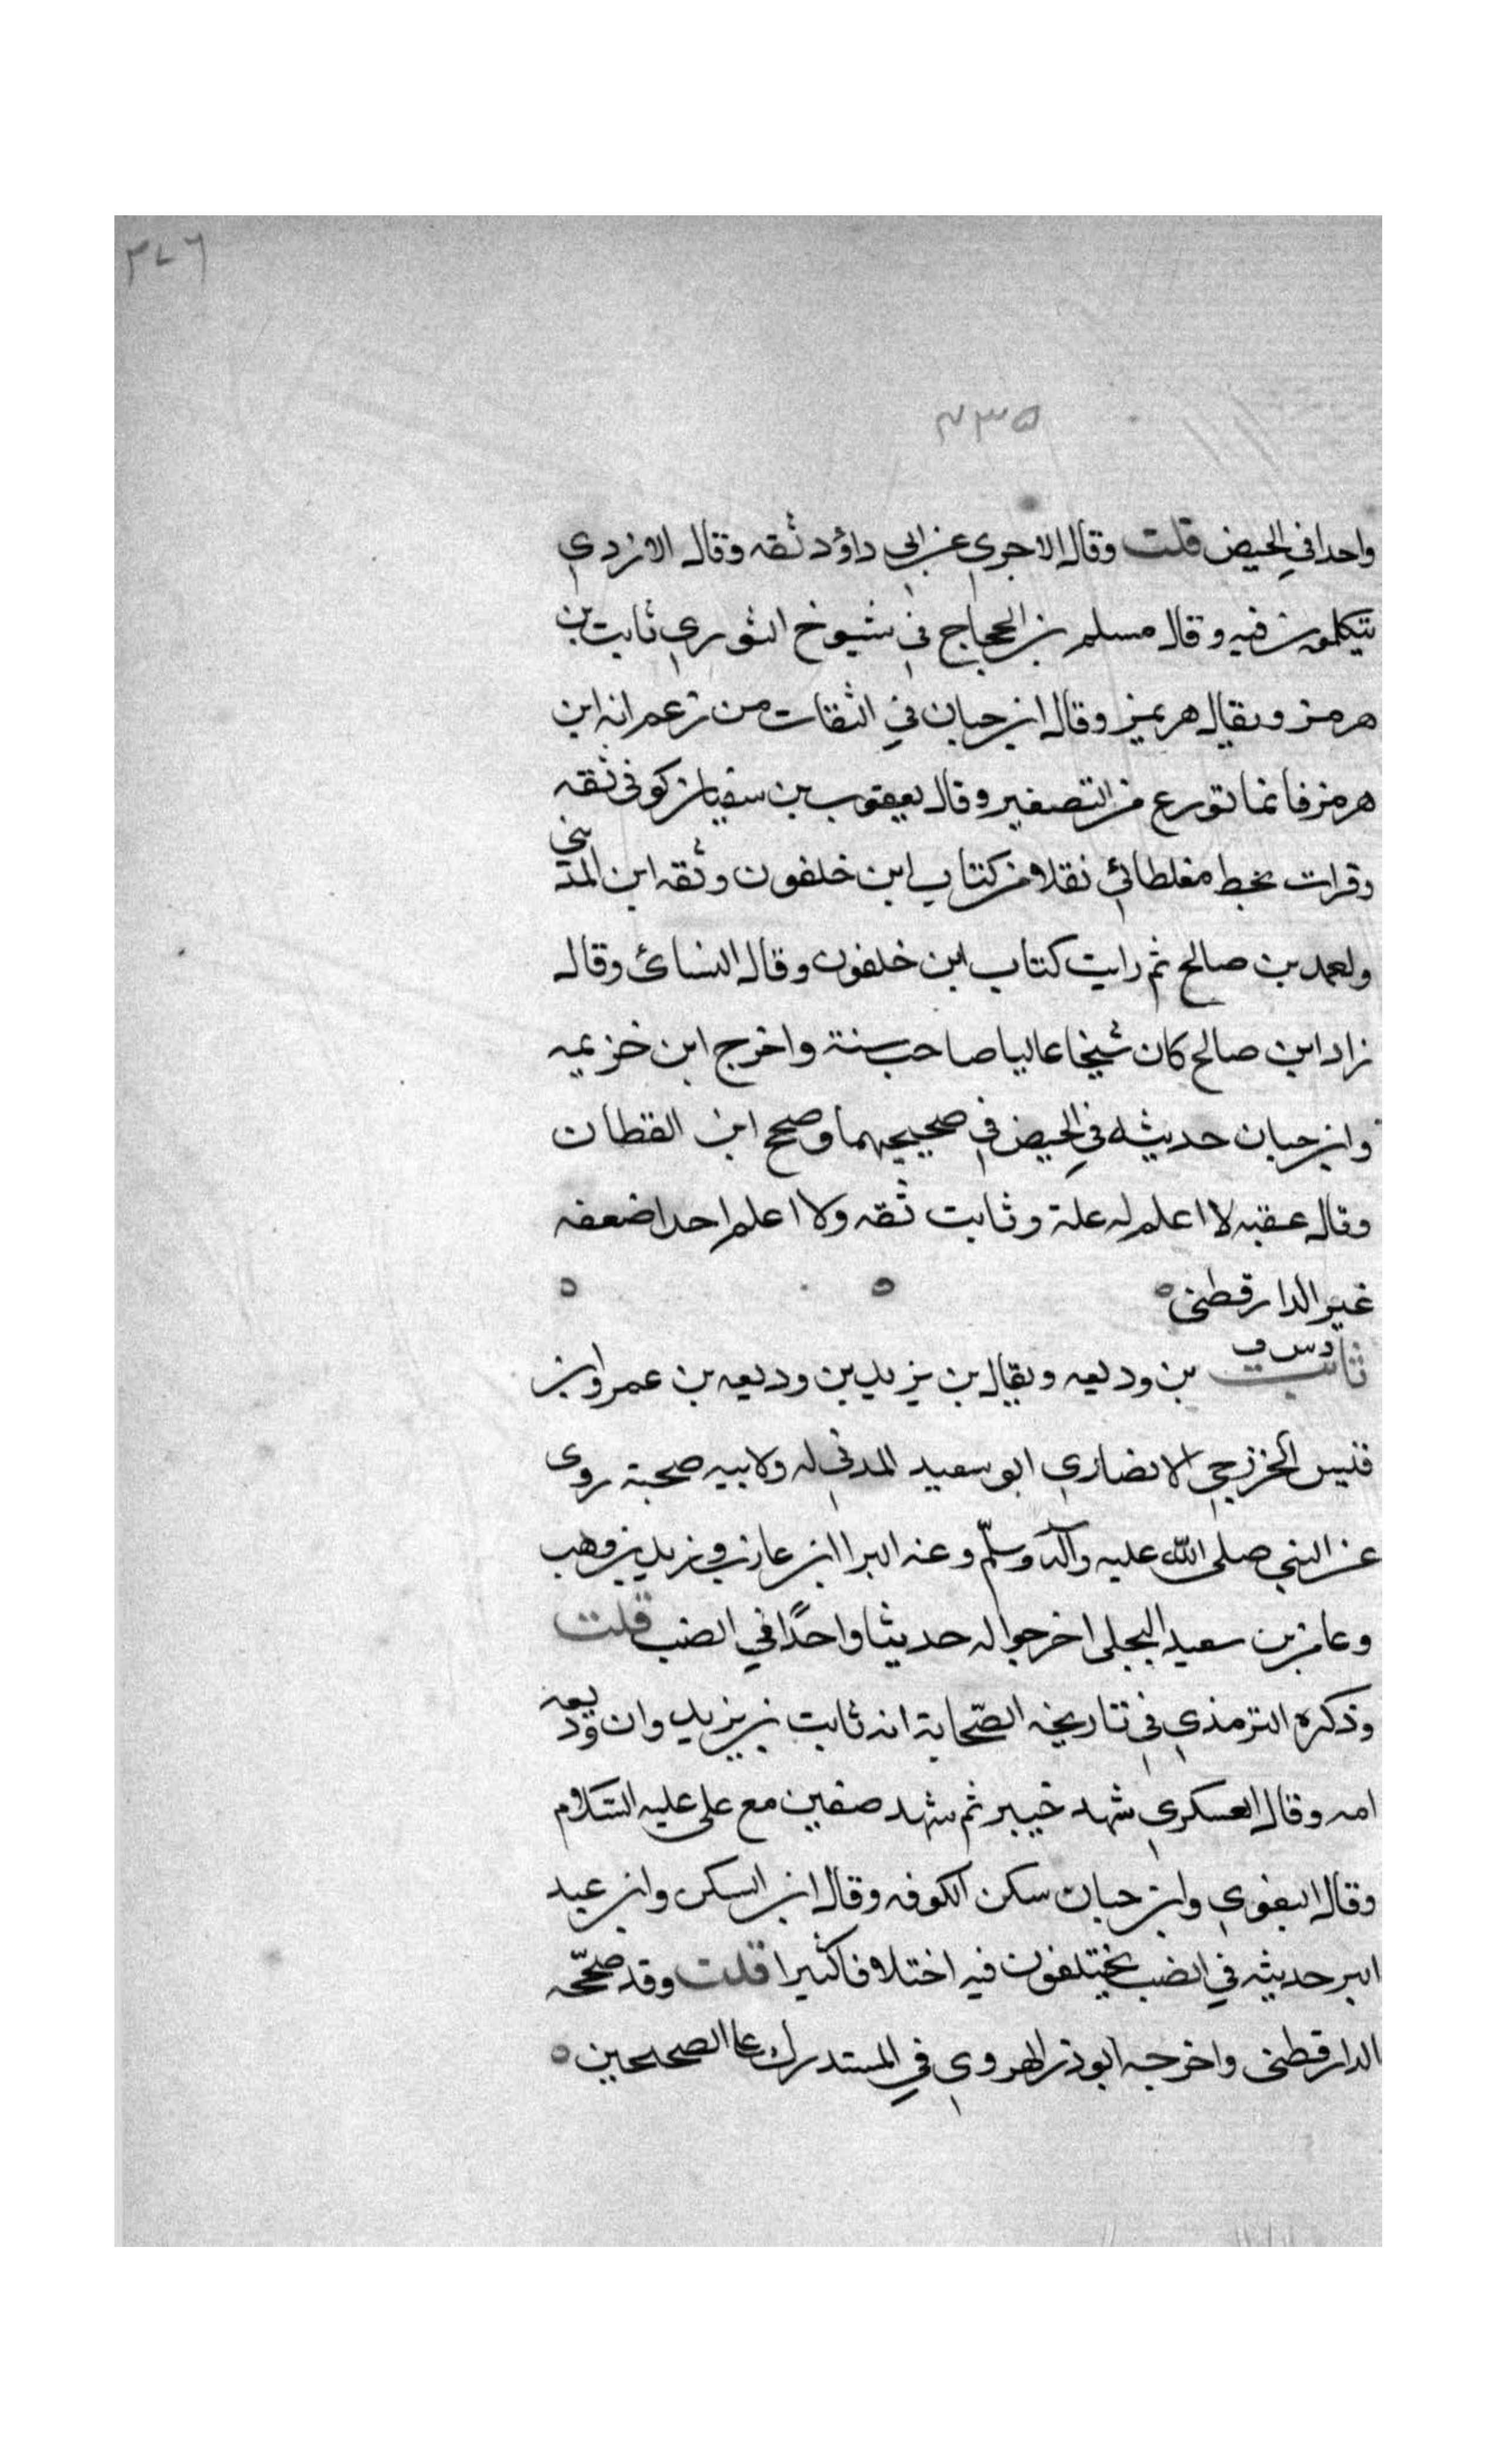 ٣٧٦
٧٣٥
واحدا في الحيض قلت وقال الاجري عن ابي داؤد ثقه وقال الازدي
يتكلمون فيه وقال مسلم بن الحجاج في شيوخ الثوري ثابت بن
هرمز ويقال هريمز وقال ابن حبان في الثقات من زعم انه ابن
هرمز فانما تورع من التصغير وقال يعقوب بن سفيان كوفي ثقه
وقرات بخط مغلطائي نقلا من كتاب ابن خلفون وثقه ابن المديني
ولعمد بن صالح ثم رايت كتاب ابن خلفون وقال النسائ وقال
زاد ابن صالح كان شيخا عاليا صاحب سنة واخرج ابن خزيمه
وابن حبان حديثه في الحيض في صحيحيهما وصحح ابن القطان
وقال عقبه لا اعلم له علة وثابت ثقه ولا اعلم احدا ضعفه
غير الدارقطني ه ه ه
د س ق
ثابت بن وديعه ويقال بن يزيد بن وديعه بن عمرو ابن
قيس الخزرجي الانصاري ابو سعيد المدني له ولابيه صحبة روى
عن النبي صلى الله عليه وآله وسلّم وعنه البرا ابن عازب وزيد بن وهب
وعامر بن سعيد البجلي اخرجوا له حديثا واحدًا في الضب قلت
وذكره الترمذي في تاريخه الصّحابة انه ثابت بن يزيد وان وديعه
امه وقال العسكري شهد خيبر ثم شهد صفين مع علي عليه السّلام
وقال البغوي وابن حبان سكن الكوفه وقال ابن السكن وابن عبد
البر حديثه في الضب يختلفون فيه اختلافا كثيرا قلت وقد صحّحه
الدارقطني واخرجه ابو ذر الهروي في المستدرك على الصحيحين ه